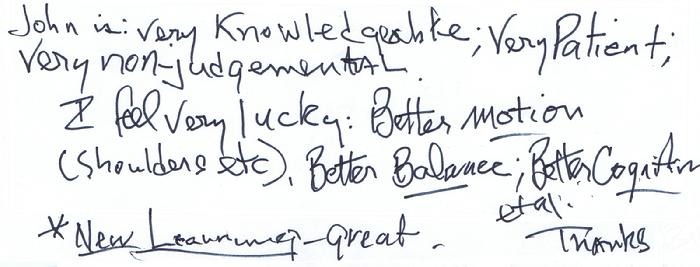 John is: very Knowledgeable; Very Patient;
very non-judgemental.
I feel very lucky: Better Motion
(shoulders etc), Better Balance; Better Cognition
et al.
* New Learning - great.
Thanks